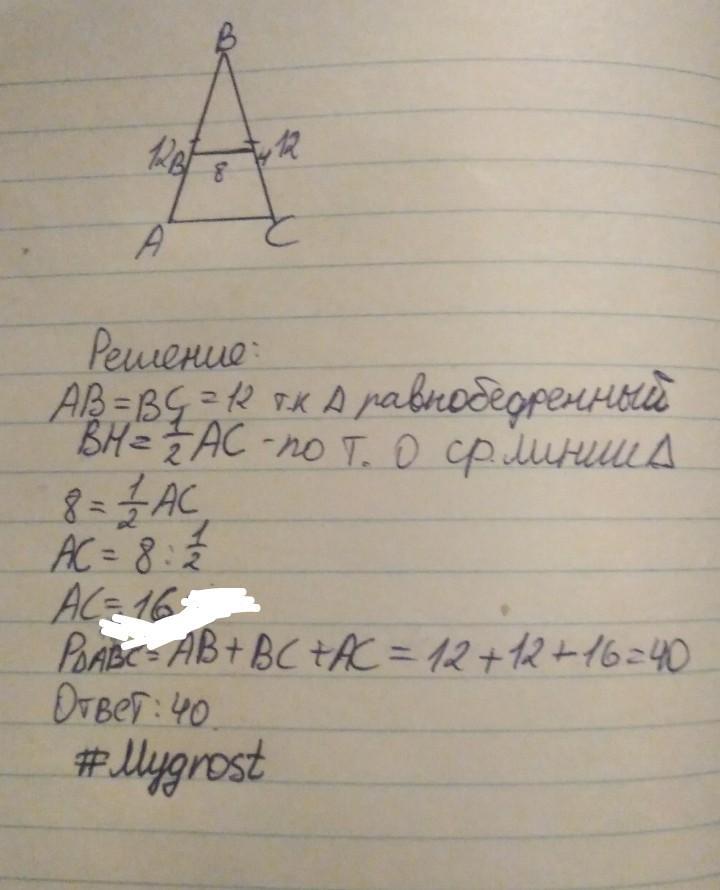 B
12 B 8 H 12
A C
Решение:
AB = BC = 12 т.к Δ равнобедренный
BH = 1/2 AC - по т. о ср. линии Δ
8 = 1/2 AC
AC = 8 : 1/2
AC = 16
PΔABC = AB + BC + AC = 12 + 12 + 16 = 40
Ответ: 40
#Mygrost